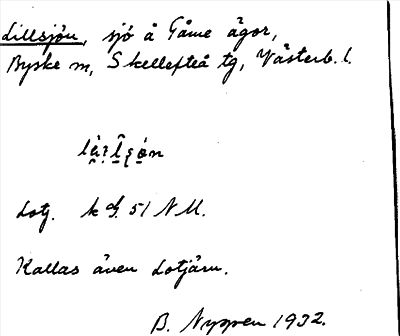 Lillsjön, sjö å Tåme ägor,
Byske sn, Skellefteå tg, Västerb. l.
Lotj. k bl. 51 NU.
Kallas även Lotjärn.
B. Nyppen 1932.